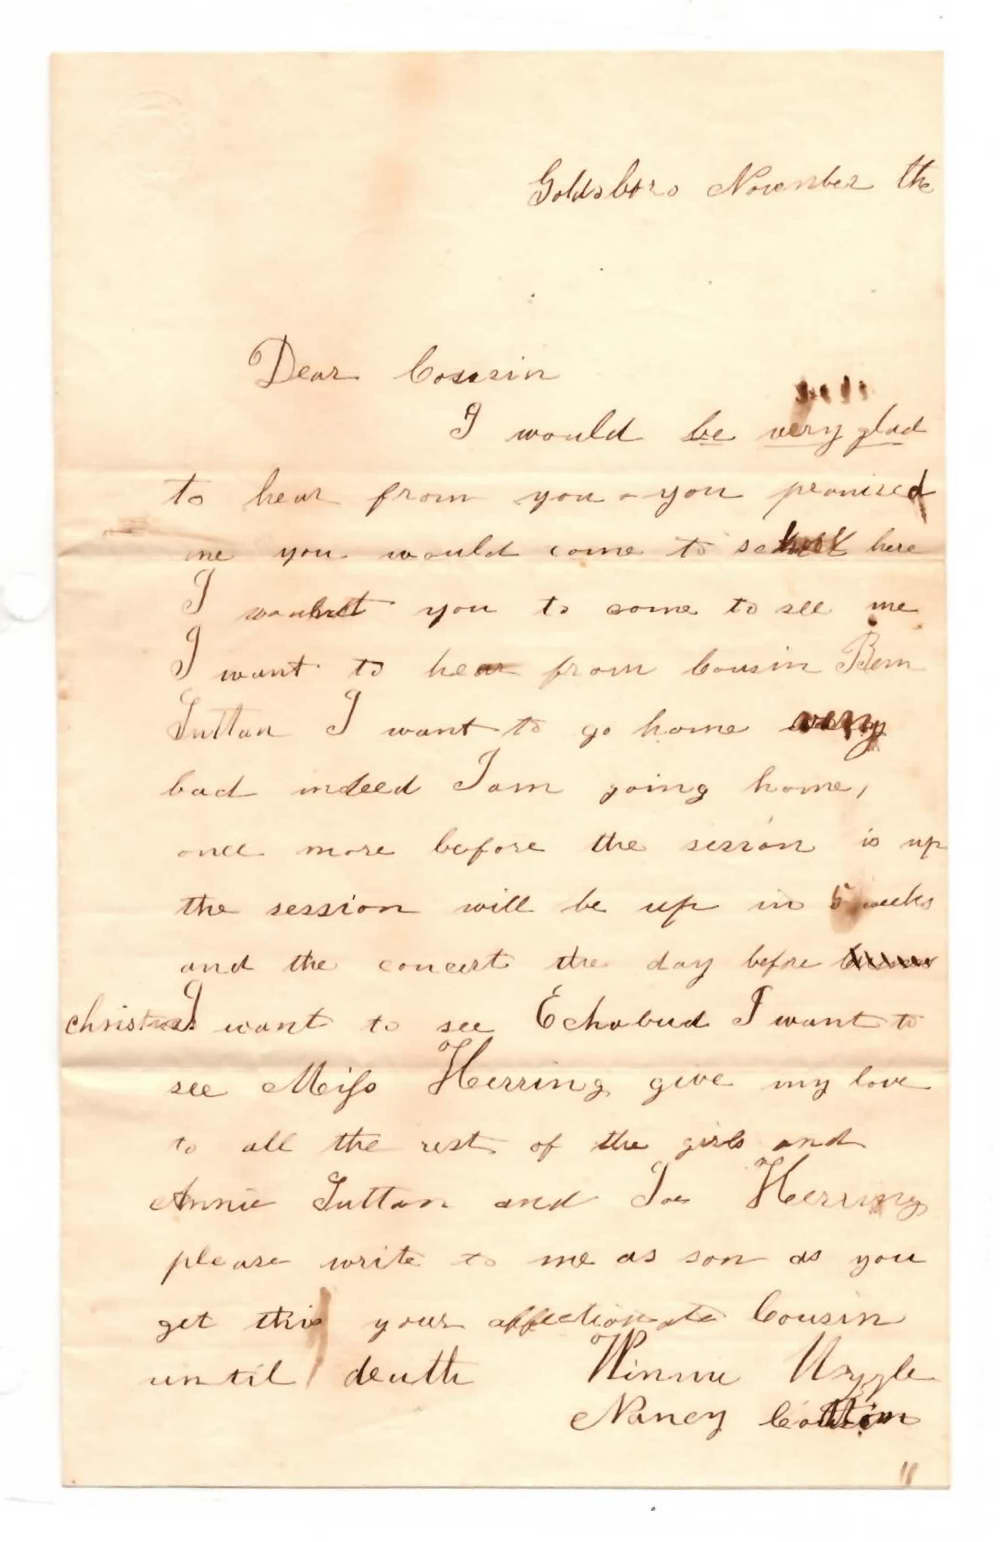 Goldsboro November the
Dear Cousin
I would be very glad
to hear from you you promised
me you would come to school here
I want you to come to see me
I want to hear from Cousin Bem
Sutton I want to go home very
bad indeed I am going home,
once more before the session is up
the session will be up in 5 weeks
and the concert the day before
christmas I want to see Echobud I want to
see Miss Herring give my love
to all the rest of the girls and
Annie Sutton and Joe Herring
please write to me as son as you
get this your affectionate Cousin
until death Winnie Uzzle
Nancy